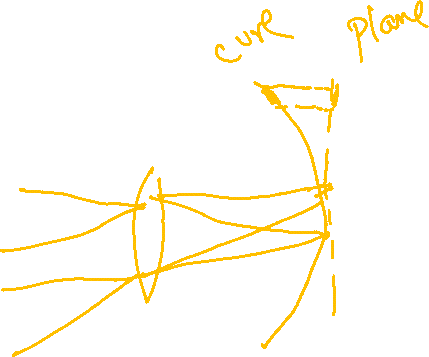 curve
plane